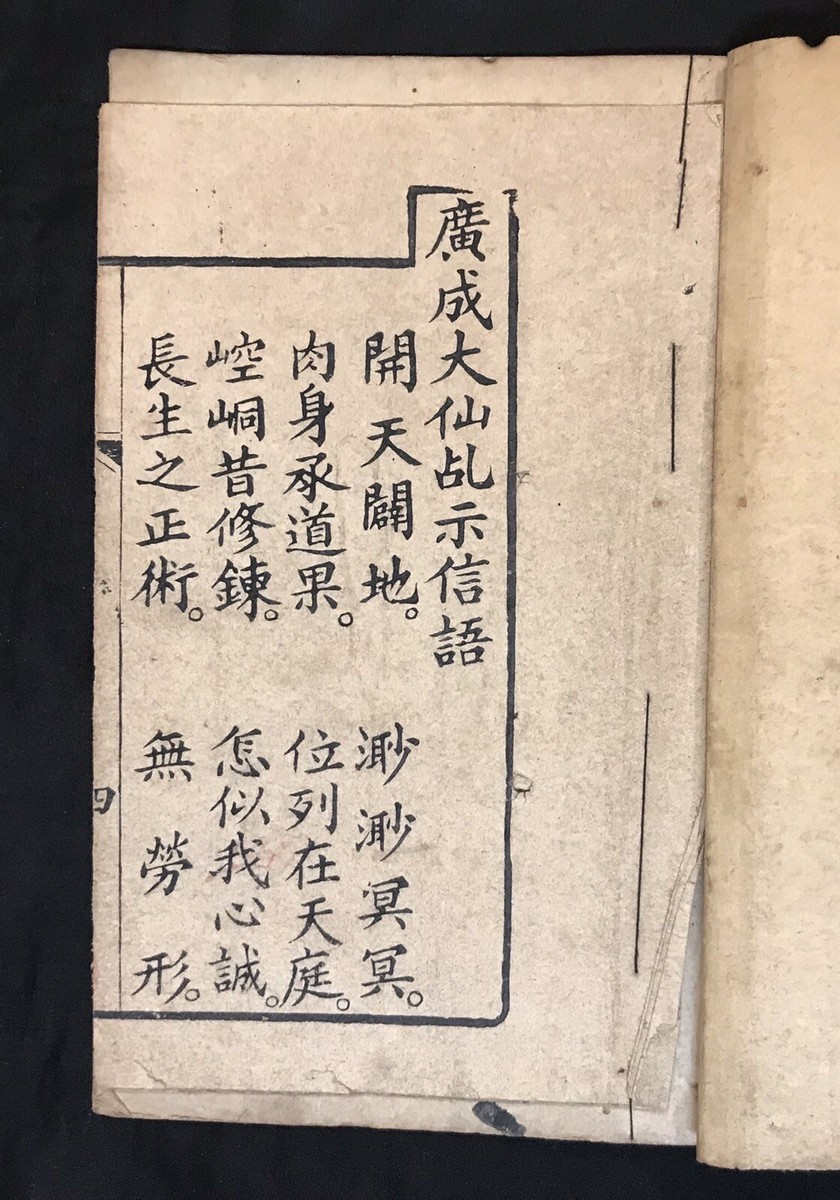 廣成大仙乩示信語
開天闢地。 渺渺冥冥。
肉身承道果。 位列在天庭。
崆峒昔修鍊。 怎似我心誠。
長生之正術。 無勞形。
四